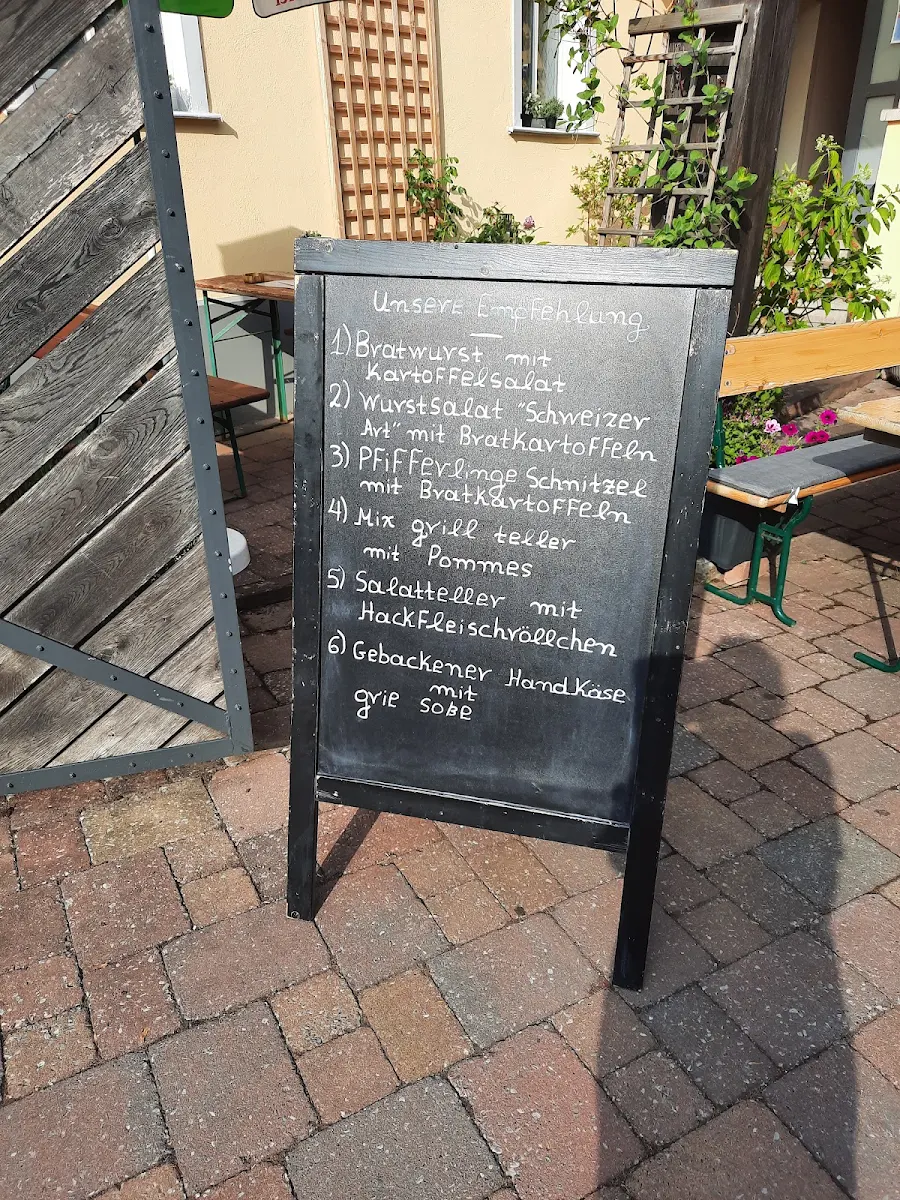 Unsere Empfehlung
1) Bratwurst mit
Kartoffelsalat
2) Wurstsalat "Schweizer
Art" mit Bratkartoffeln
3) Pfifferlinge Schnitzel
mit Bratkartoffeln
4) Mix grill teller
mit Pommes
5) Salatteller mit
Hackfleischröllchen
6) Gebackener Handkäse
mit
grie soße